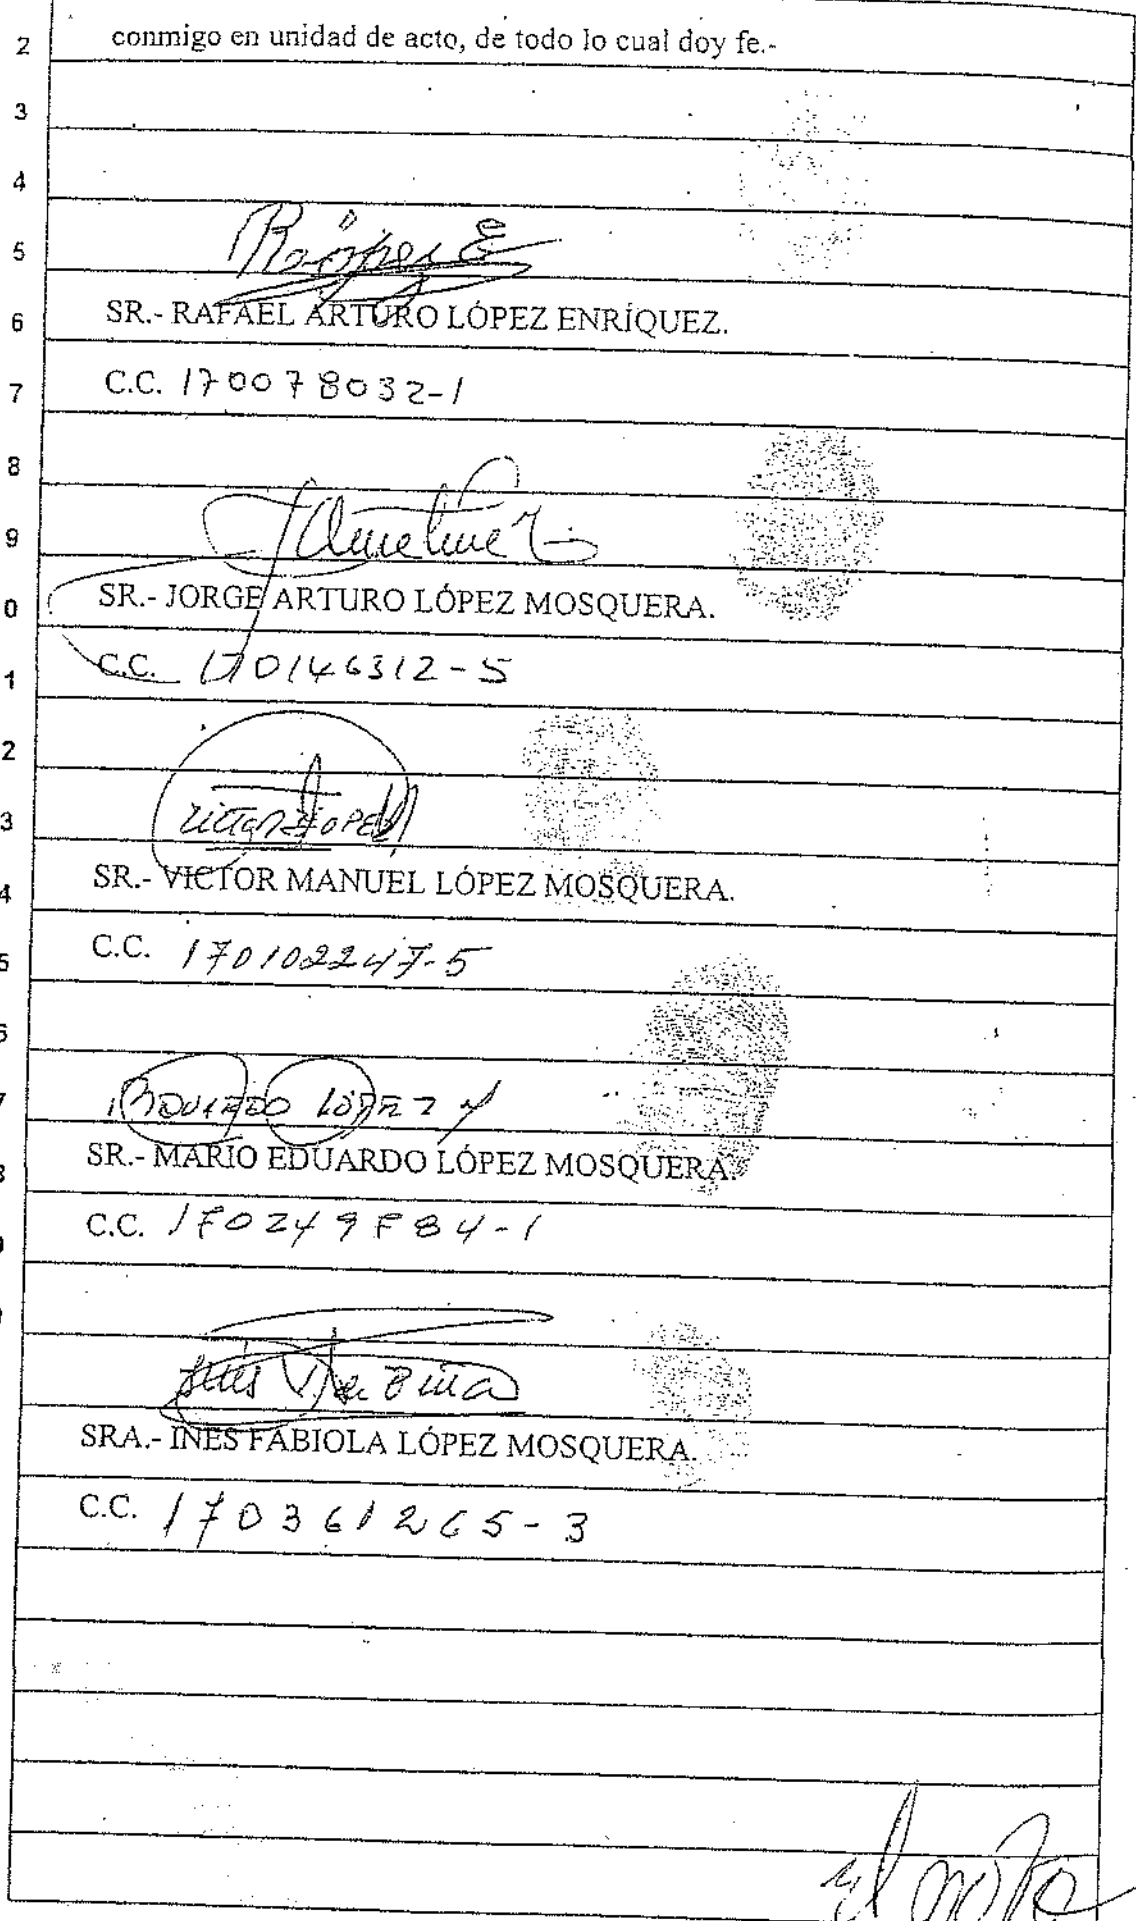 2 conmigo en unidad de acto, de todo lo cual doy fe.-
3
4
5
6 SR.- RAFAEL ARTURO LÓPEZ ENRÍQUEZ.
7 C.C. 170078032-1
8
9
0 SR.- JORGE ARTURO LÓPEZ MOSQUERA.
1 C.C. 170146312-5
2
3
4 SR.- VICTOR MANUEL LÓPEZ MOSQUERA.
5 C.C. 170102247-5
6
7 EDUARDO LÓPEZ M
8 SR.- MARIO EDUARDO LÓPEZ MOSQUERA.
9 C.C. 170249784-1
SRA.- INES FABIOLA LÓPEZ MOSQUERA.
C.C. 170361265-3